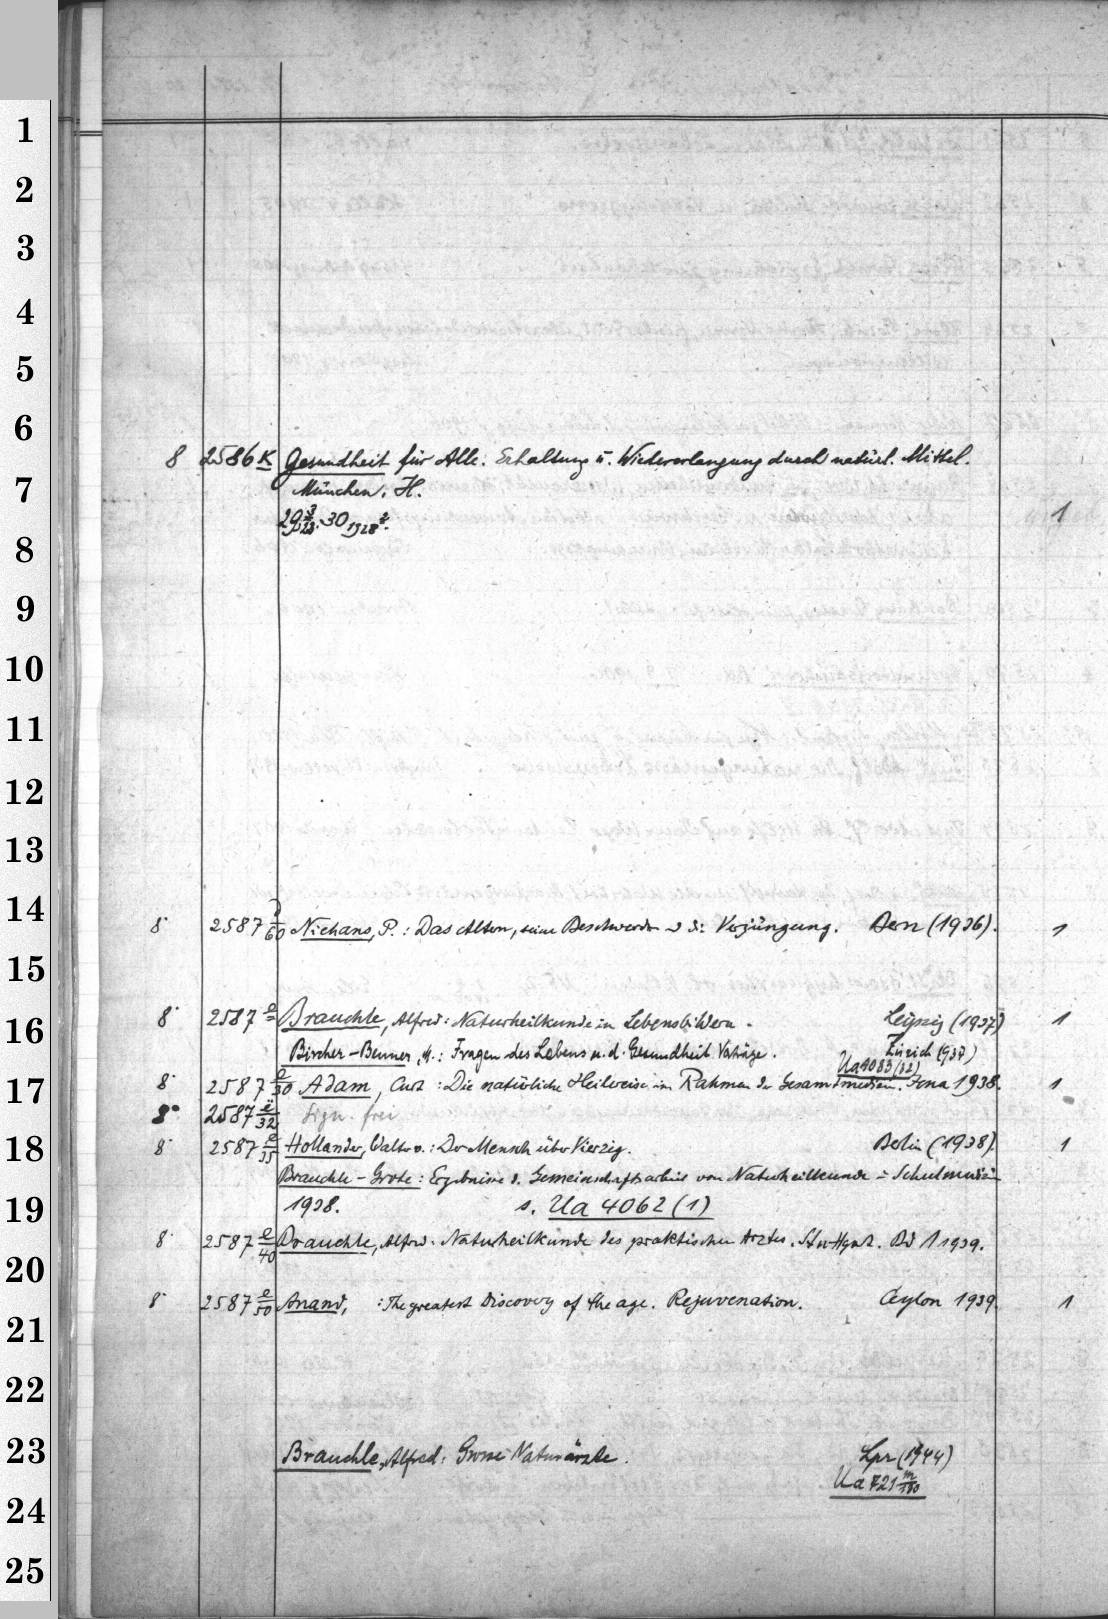 1
2
3
4
5
6
8 2586 K Gesundheit für Alle. Erhaltung u. Wiedererlangung durch natürl. Mittel.
7
München. 4.
1
8
9
10
11
12
13
14
8° 2587 d/60 Niehans, P.: Das Altern, seine Beschwerden u. s. Verjüngung. Bern (1936). 1
15
16
8° 2587 e Brauchle, Alfred: Naturheilkunde in Lebensbildern. Leipzig (1937) 1
Bircher-Benner, M.: Fragen des Lebens u. d. Gesundheit. Vorträge. Zürich (937)
Ua 1083 (12)
17
8° 2587 e/30 Adam, Curt: Die natürliche Heilweise im Rahmen der Gesamtmedizin. Jena 1938. 1
8° 2587 e/32 Sign. frei
18
8° 2587 e/35 Hollander, Walter v.: Der Mensch über Vierzig. Berlin (1938) 1
Brauchle-Grote: Ergebnisse d. Gemeinschaftsarbeit von Naturheilkunde u. Schulmedizin
19
1938. s. Ua 4062 (1)
8° 2587 e/40 Brauchle, Alfred: Naturheilkunde des praktischen Arztes. Bd 1 1939.
20
8° 2587 e/50 Anand, : The greatest Discovery of the age. Rejuvenation. Ceylon 1939. 1
21
22
23
Brauchle, Alfred: Grosse Naturärzte. Lpz (1944)
Ua 721 m/180
24
25